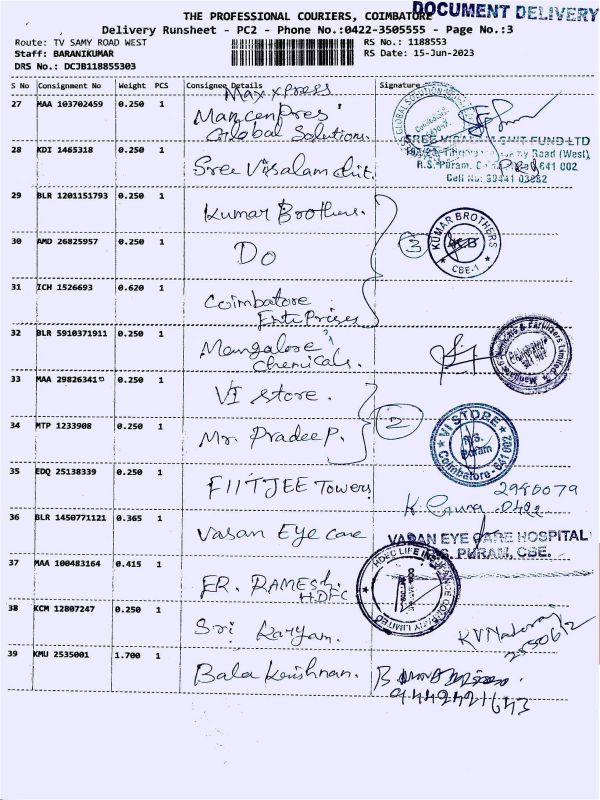 DOCUMENT DELIVERY
THE PROFESSIONAL COURIERS, COIMBATORE
Delivery Runsheet - PC2 - Phone No.:0422-3505555 - Page No.:3
Route: TV SAMY ROAD WEST
RS No.: 1188553
Staff: BARANIKUMAR
RS Date: 15-Jun-2023
DRS No.: DCJB118855303
S No Consignment No Weight PCS Consignee Details Signature
Maxxpress
27 MAA 103702459 0.250 1 MancenPres'
Global Solution.
28 KDI 1465318 0.250 1 Sree Visalam chit.
SREE VISALAM CHIT FUND LTD
Road (West),
R.S. Puram, 641 002
Cell No: 98441 03882
29 BLR 1201151793 0.250 1 Kumar Brothers.
3
KUMAR BROTHERS
K.B
CBE-1
30 AMD 26825957 0.250 1 Do
31 ICH 1526693 0.620 1 Coimbatore
Enterprises
32 BLR 5910371911 0.250 1 Mangalore
chemicals.
33 MAA 29826341 0.250 1 VI store.
2
34 MTP 1233908 0.250 1 Mr. Pradeep.
VI STORE
R.S. Puram
Coimbatore-641 002
35 EDQ 25138339 0.250 1 FIITJEE Towers
2980079
36 BLR 1450771121 0.365 1 Vasan Eye care
VASAN EYE CARE HOSPITAL
R.S. PURAM, CBE.
37 MAA 100483164 0.415 1 ER. RAMESH.
HDFC
HDFC LIFE INSURANCE COMPANY LIMITED
38 KCM 12807247 0.250 1 Sri Karyan.
39 KMU 2535001 1.700 1 Bala Krishnan.
9442421643